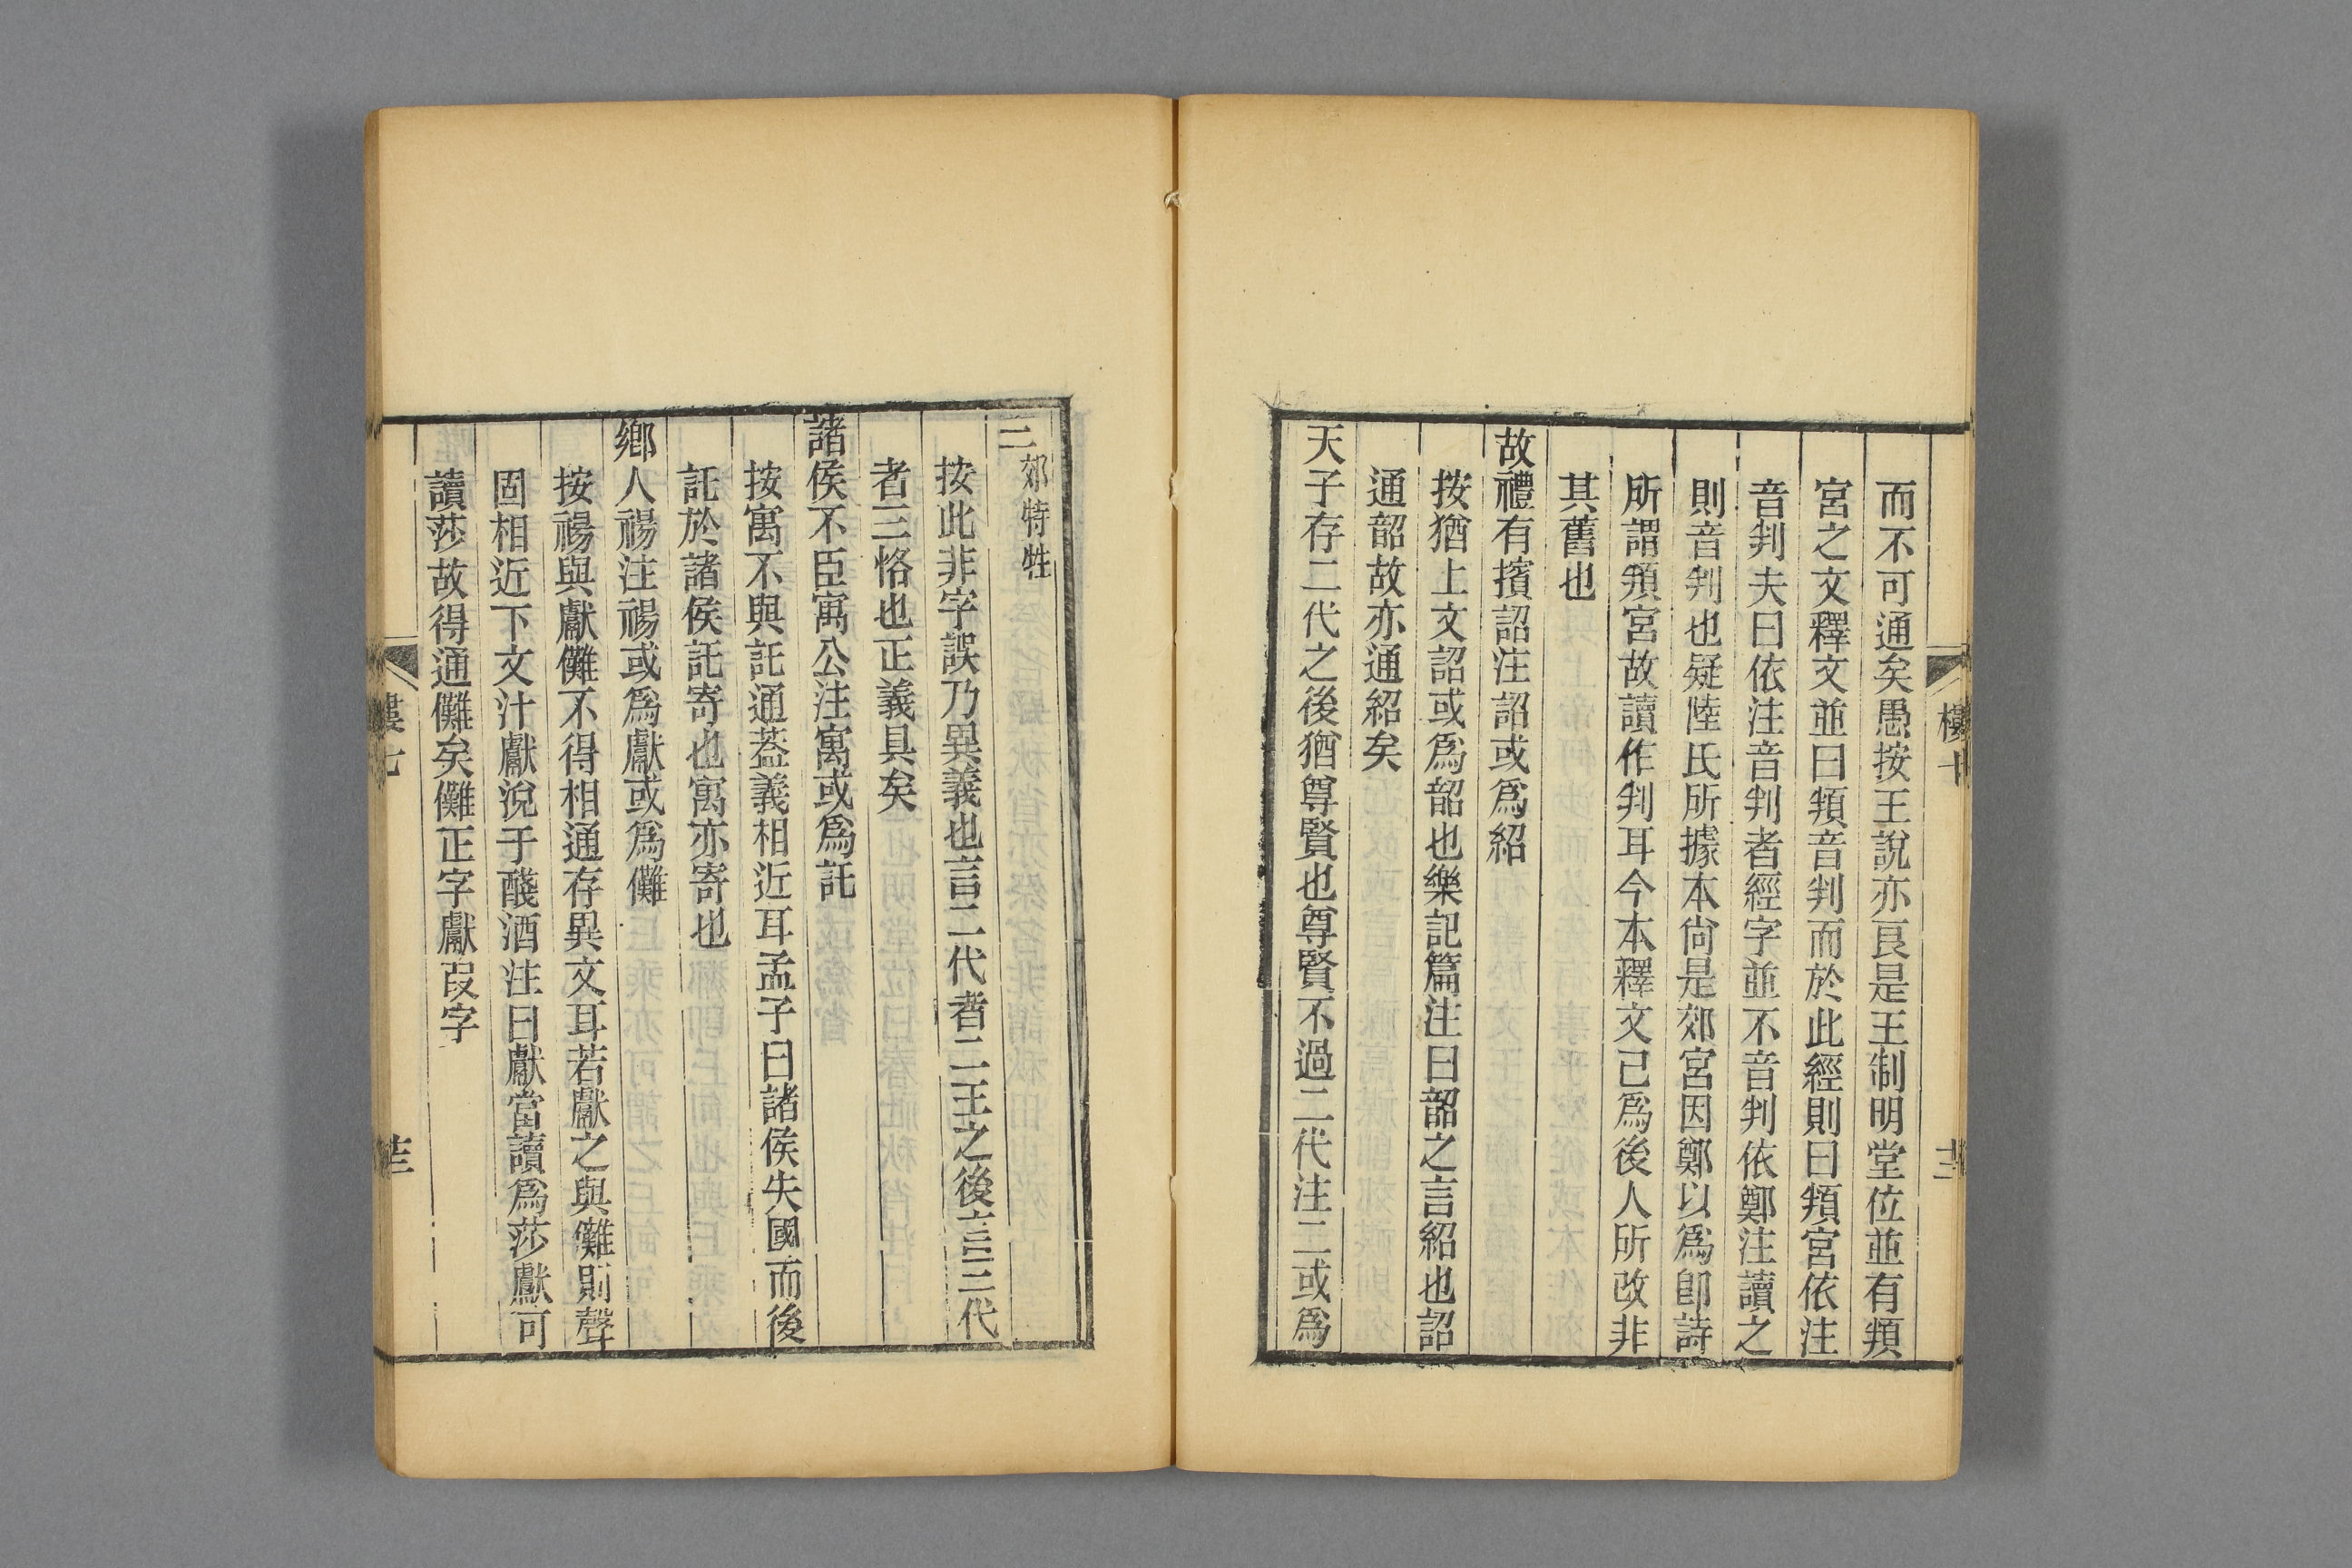 而不可通矣愚按王說亦良是王制明堂位並有頖
宮之文釋文並曰頖音判而於此經則曰頖宮依注
音判夫曰依注音判者經字並不音判依鄭注讀之
則音判也疑陸氏所據本尙是郊宮因鄭以爲卽詩
所謂頖宮故讀作判耳今本釋文已爲後人所改非
其舊也
故禮有擯詔注詔或爲紹
按猶上文詔或爲韶也樂記篇注曰韶之言紹也詔
通韶故亦通紹矣
天子存二代之後猶尊賢也尊賢不過二代注二或爲
三郊特牲
按此非字誤乃異義也言二代者二王之後言三代
者三恪也正義具矣
諸侯不臣寓公注寓或爲託
按寓不與託通葢義相近耳孟子曰諸侯失國而後
託於諸侯託寄也寓亦寄也
鄉人禓注禓或爲獻或爲儺
按禓與獻儺不得相通存異文耳若獻之與儺則聲
固相近下文汁獻涗于醆酒注曰獻當讀爲莎獻可
讀莎故得通儺矣儺正字獻叚字
樓七